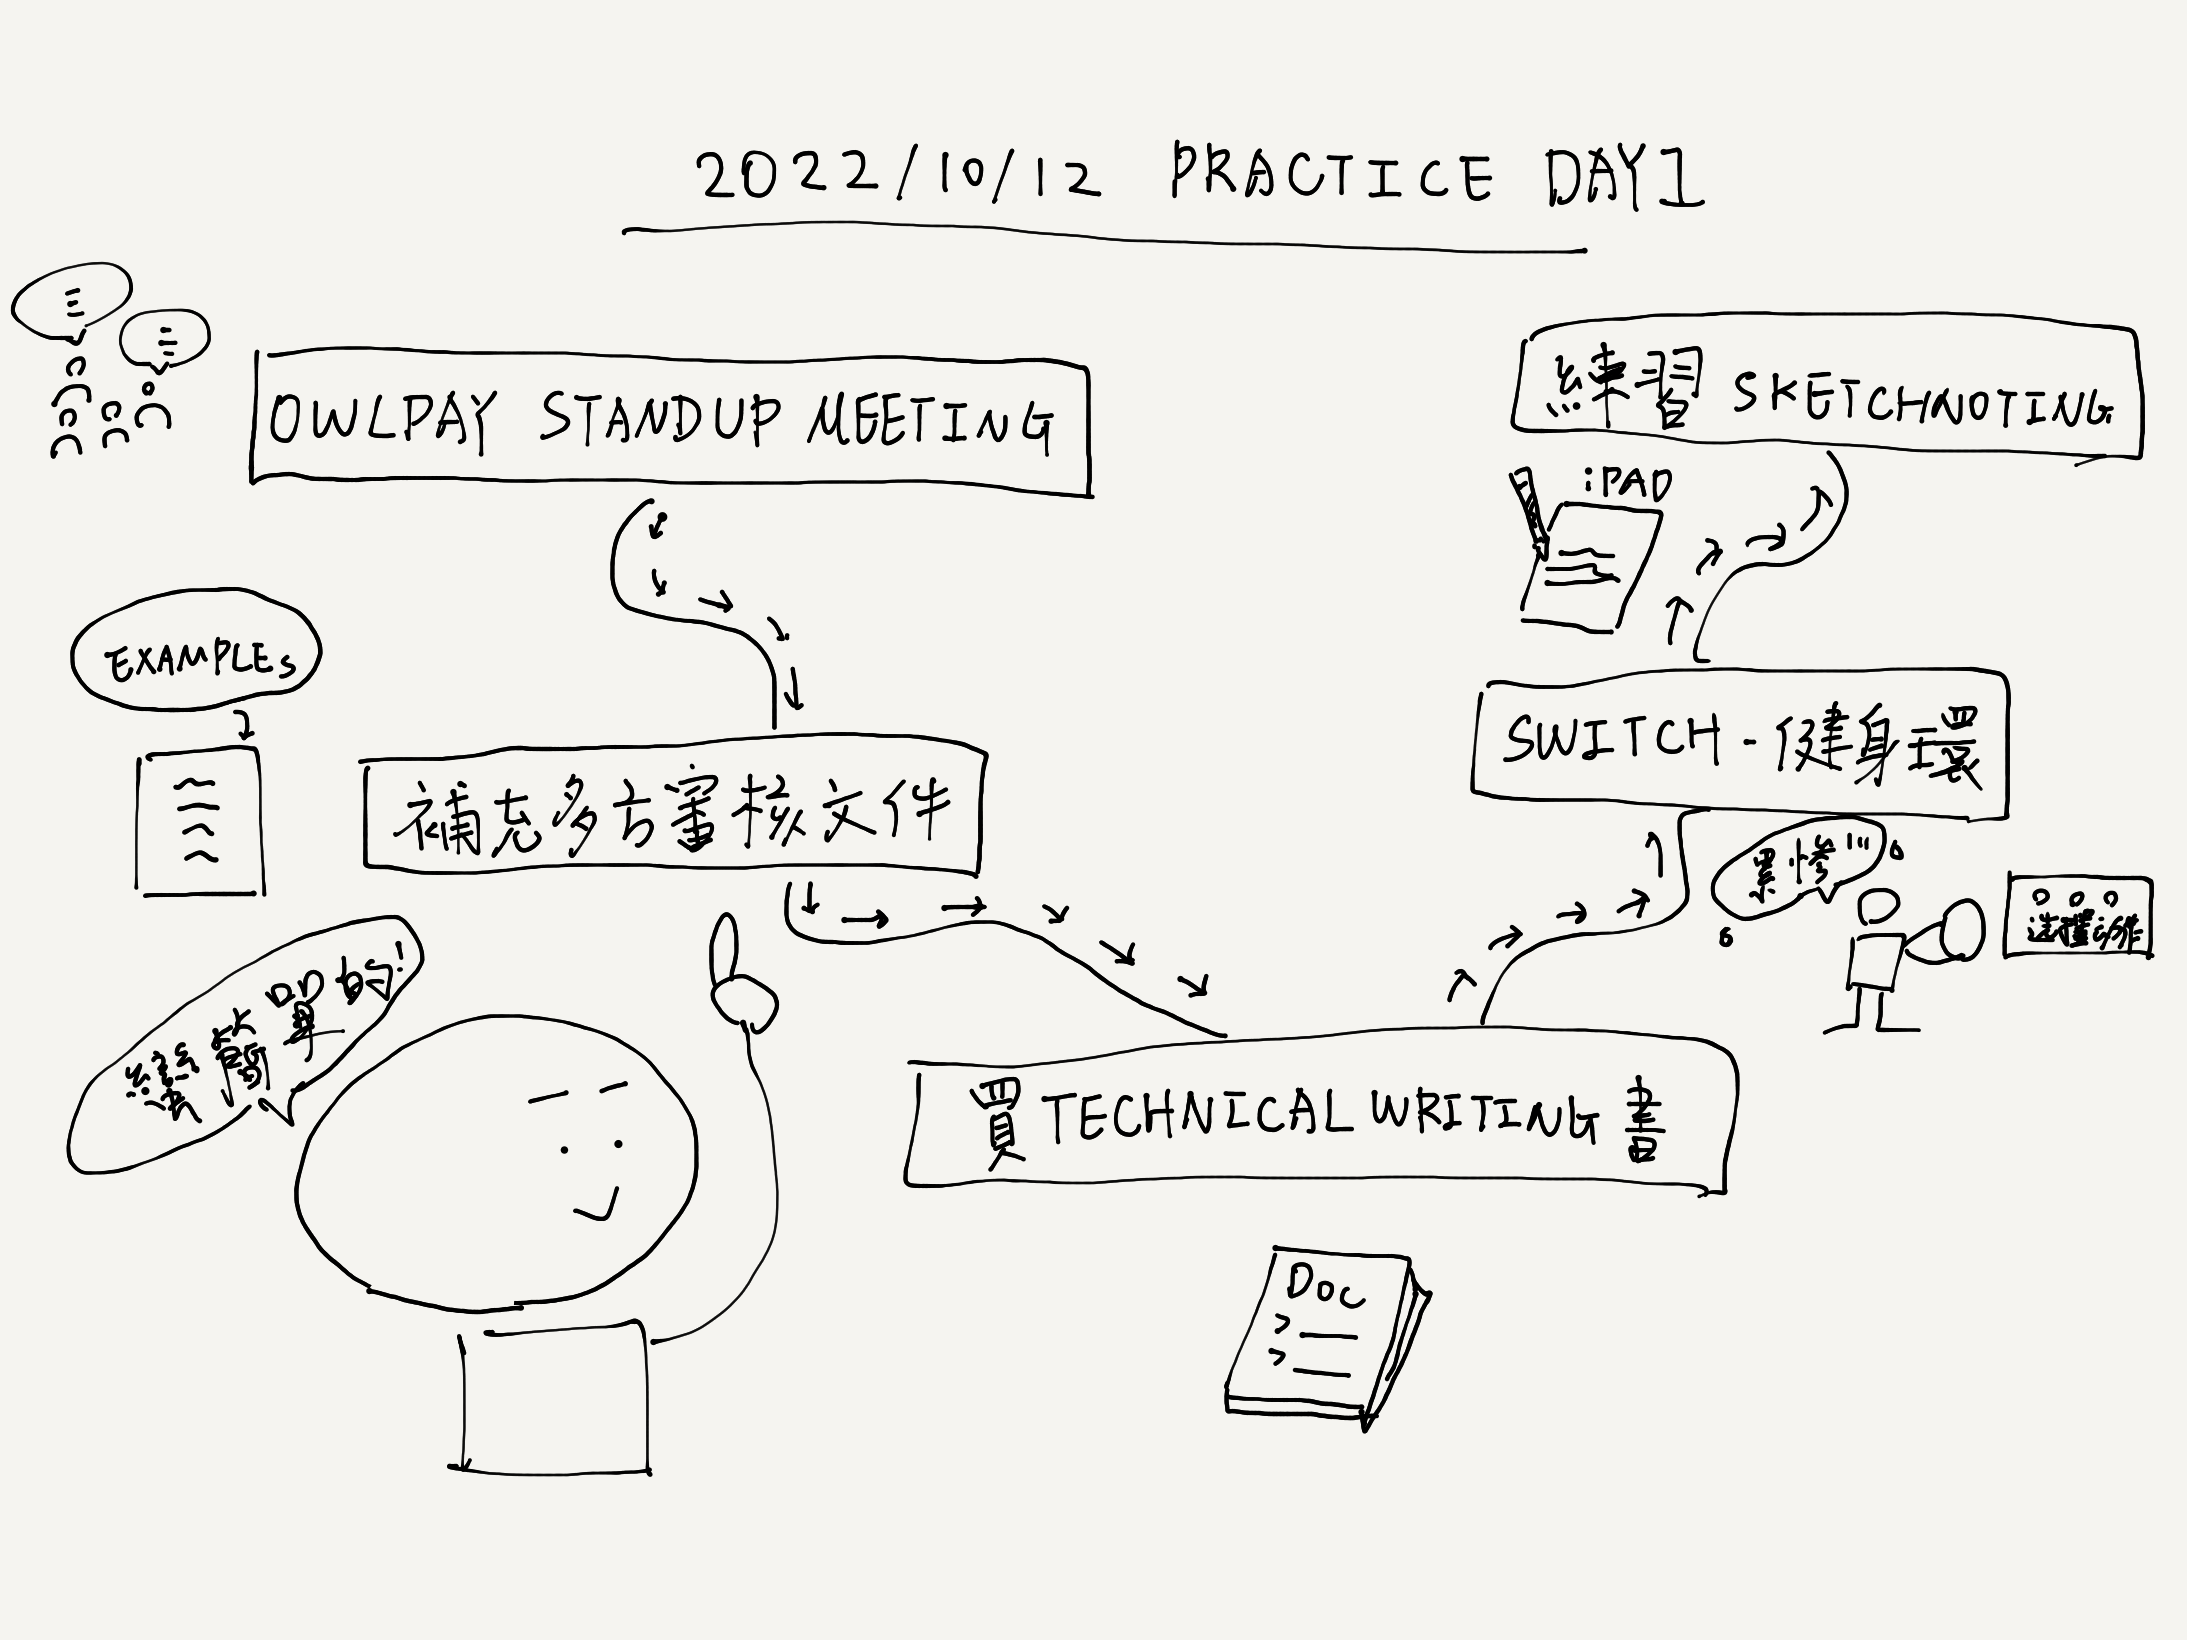 2022/10/12 PRACTICE DAY1
OWLPAY STANDUP MEETING
EXAMPLES
補充多方審核文件
簡單的!
買 TECHNICAL WRITING 書
DOC
SWITCH - 健身環
累慘
選擇動作
練習 SKETCHNOTING
iPAD